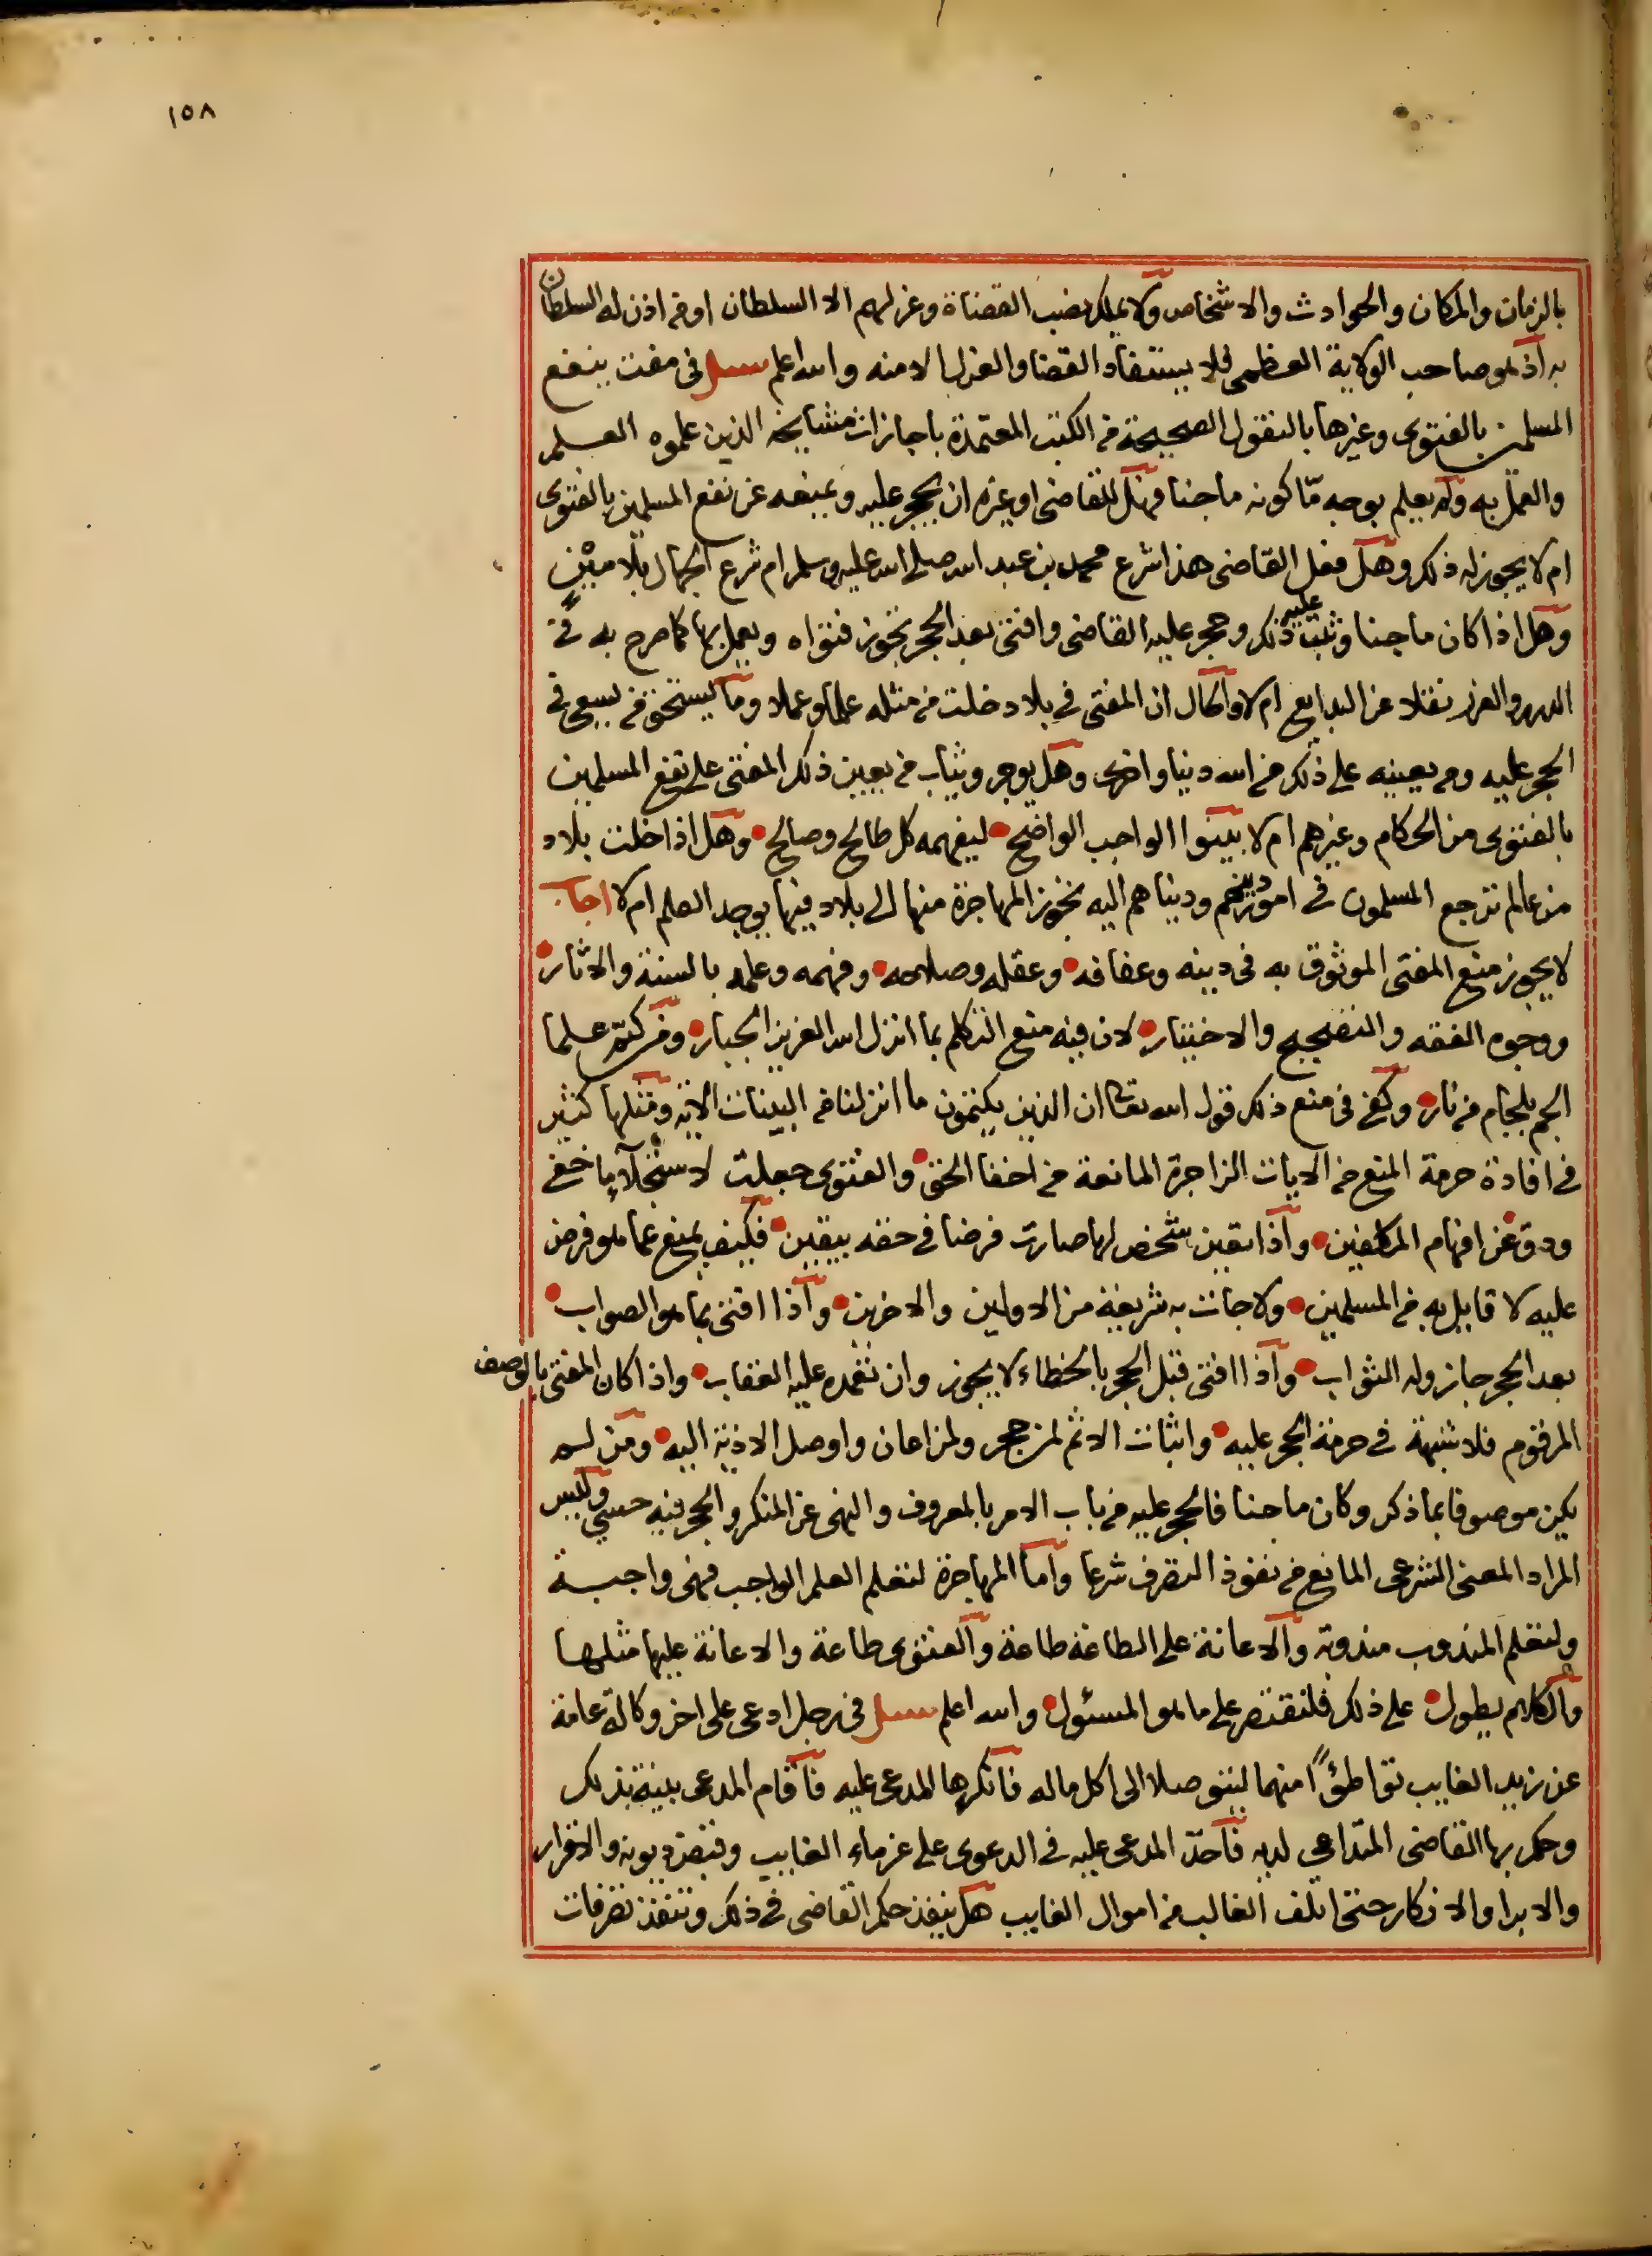 ١٥٨
بالزمان والمكان والحوادث والاشخاص ولا يملك نصب القضاة وعزلهم الا السلطان او من اذن له السلطان
به اذ هو صاحب الولاية العظمى فلا يستفاد القضا والعزل الا منه والله اعلم سئل فى مفت ينفع
المسلمين بالفتوى وغيرها بالنقول الصحيحة من الكتب المعتمدة باجازات مشايخه الذين علموه العلم
والعمل به ولم يعلم بوجه مّا كونه ماجنا فهل للقاضى او غيره ان يحجر عليه ويمنعه عن نفع المسلمين بالفتوى
ام لا يجوز له ذلك وهل فعل القاضى هذا شرع محمد بن عبد الله صلى الله عليه وسلم ام شرع الجهال بلا مين
وهل اذا كان ماجنا وثبت عليه ذلك وحجر عليه القاضى وافتى بعد الحجر تجوز فتواه ويعمل بها كما صرح به فى
الدرر والغرر نقلا عن البدايع ام لا والحال ان المفتى فى بلاد خلت من مثله علما وعملا وما يستحق من يسعى فى
الحجر عليه ومن يعينه على ذلك من الله دنيا واخرى وهل يوجر ويثاب من يعين ذلك المفتى على نفع المسلمين
بالفتوى من الحكام وغيرهم ام لا بينوا الواجب الواضح ليفهمه كل طالح وصالح وهل اذا خلت بلاد
من عالم ترجع المسلمون فى امور دينهم ودنياهم اليه تجوز المهاجرة منها الى بلاد فيها يوجد العلم ام لا اجاب
لا يجوز منع المفتى الموثوق به فى دينه وعفافه وعقله وصلاحه وفهمه وعلمه بالسنة والاثار
ووجوه الفقه والتصحيح والاختيار لان فيه منع التكلم بما انزل الله العزيز الجبار ومن كتم علما
الجم بلجام من نار وكفى فى منع ذلك قول الله تعالى ان الذين يكتمون ما انزلنا من البينات الاية ومثلها كثير
فى افادة حرمة المنع من الايات الزاجرة المانعة من اخفا الحق والفتوى جعلت لاستجلاء ما خفى
ودق عن افهام المكلفين واذا تعين شخص لها صارت فرضا فى حقه بيقين فكيف يمنع عما هو فرض
عليه لا قايل به من المسلمين ولا جانت به شريعة من الاولين والاخرين واذا افتى بما هو الصواب
بعد الحجر جاز وله الثواب واذا افتى قبل الحجر بالخطاء لا يجوز وان تعمده عليه العقاب واذا كان المفتى بالوصف
المرقوم فلا شبهة فى حرمة الحجر عليه واثبات الاثم لمن حجر ولمن اعان واوصل الاذية اليه ومن لم
يكن موصوفا بما ذكر وكان ماجنا فالحجر عليه من باب الامر بالمعروف والنهى عن المنكر والحجر فيه حسي وليس
المراد المعنى الشرعى المانع من نفوذ التصرف شرعا واما المهاجرة لتعلم العلم الواجب فهى واجبة
ولتعلم المندوب مندوبة والاعانة على الطاعة طاعة والفتوى طاعة والاعانة عليها مثلها
والكلام يطول على ذلك فلنقتصر على ما هو المسئول والله اعلم سئل فى رجل ادعى على اخر وكالة عامة
عن زيد الغايب تواطؤًا منهما ليتوصلا الى اكل ماله فانكرها المدعى عليه فاقام المدعى بينة بذلك
وحكم بها القاضى المتداعى لديه فاخذ المدعى عليه فى الدعوى على غرماء الغايب وقبض ديونه والاقرار
والابرا والانكار حتى اتلف الغالب من اموال الغايب هل ينفذ حكم القاضى فى ذلك وتنفذ تصرفات